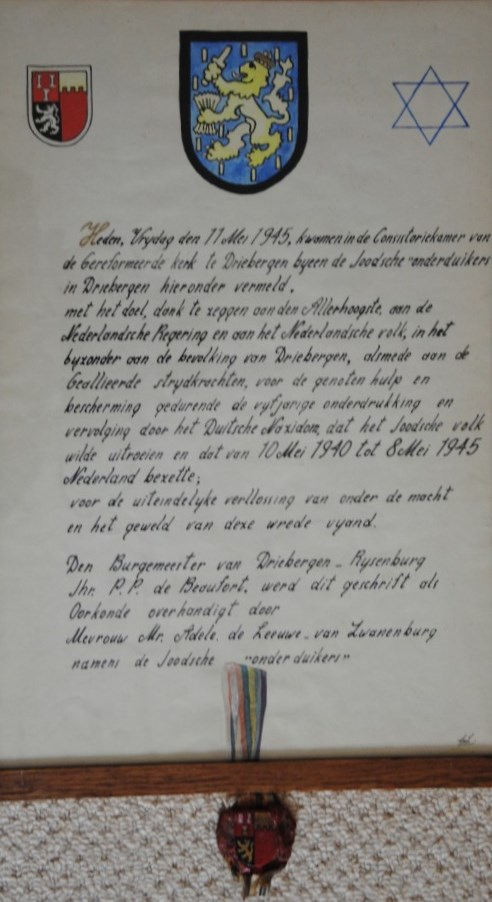 Heden, Vrydag den 11 Mei 1945, kwamen in de Consistoriekamer van
de Gereformeerde kerk te Driebergen byeen de Joodsche "onderduikers
in Driebergen hieronder vermeld.
met het doel, dank te zeggen aan den Allerhoogste, aan de
Nederlandsche Regering en aan het Nederlandsche volk, in het
byzonder aan de bevolking van Driebergen, alsmede aan de
Geallieerde strydkrachten, voor de genoten hulp en
bescherming gedurende de vyfjarige onderdrukking en
vervolging door het Duitsche Nazidom, dat het Joodsche volk
wilde uitroeien en dat van 10 Mei 1940 tot 8 Mei 1945
Nederland bezette;
voor de uiteindelyke verllossing van onder de macht
en het geweld van deze wrede vyand.
Den Burgemeester van Driebergen - Rysenburg
Jhr. P.P. de Beaufort, werd dit geschrift als
Oorkonde overhandigt door
Mevrouw Mr. Adele de Leeuwe - van Zwanenburg
namens de Joodsche "onderduikers"